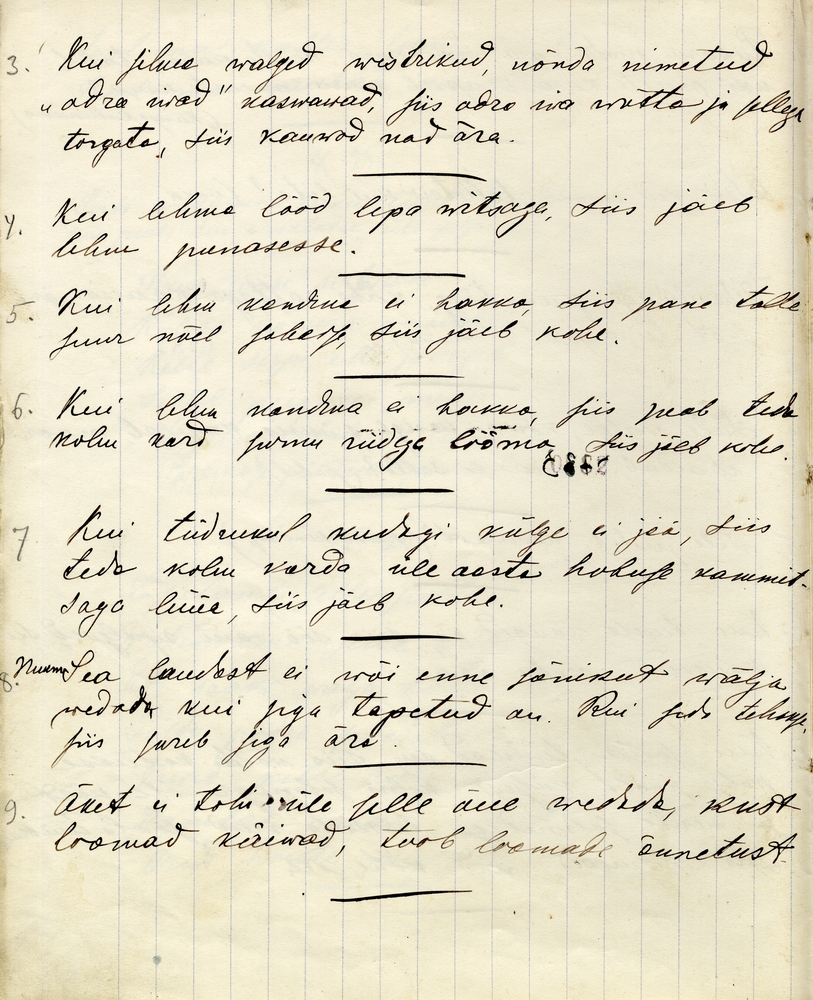 3. Kui silma walged wistrikud, nõnda nimetud
„odra iwad" kaswawad, siis odra iwa wõtta ja sellega
torgata, siis kauwad nad ära.
4. Kui lehma lööd lepa witsaga, siis jääb
lehm punasesse.
5. Kui lehm kandma ei hakka, siis pane talle
suur nõel sabasse, siis jääb kohe.
6. Kui lehm kandma ei hakka, siis peab teda
kolm kord surnu riidega lööma, siis jääb kohe.
7 Kui tüdrukul kudagi külge ei jää, siis
teda kolm korda üle aasta hobuse kammit-
saga lüüa, siis jääb kohe.
8. Sea laudast ei wõi enne sõnikut wälja
wedada kui siga tapetud on. Kui seda tehakse,
siis sureb siga ära.
9. Äket ei tohi üle selle õue wedada, kust
loomad käiwad, toob loomade õnnetust